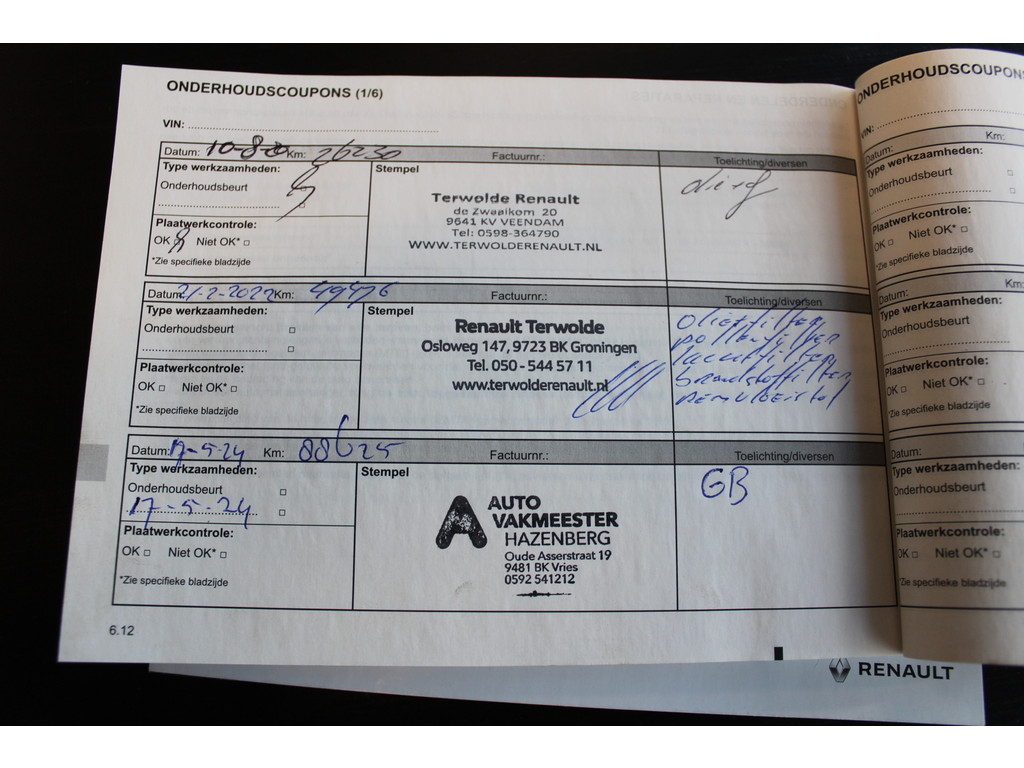 ONDERHOUDSCOUPONS (1/6)
VIN:
Datum: 10-8-20 Km: 26230 Factuurnr.: Toelichting/diversen
Type werkzaamheden: Stempel
Onderhoudsbeurt
Terwolde Renault
de Zwaaikom 20
9641 KV VEENDAM
Tel: 0598-364790
WWW.TERWOLDERENAULT.NL
Plaatwerkcontrole:
OK Niet OK*
*Zie specifieke bladzijde
Datum: 21-2-2022 Km: 49476 Factuurnr.: Toelichting/diversen
Type werkzaamheden: Stempel
Onderhoudsbeurt
Renault Terwolde
Osloweg 147, 9723 BK Groningen
Tel. 050 - 544 57 11
www.terwolderenault.nl
oliefilter
pollenfilter
luchtfilter
brandstoffilter
remvloeistof
Plaatwerkcontrole:
OK Niet OK*
*Zie specifieke bladzijde
Datum: 17-5-24 Km: 88625 Factuurnr.: Toelichting/diversen
Type werkzaamheden: Stempel
Onderhoudsbeurt
17-5-24
GB
AUTO
VAKMEESTER
HAZENBERG
Oude Asserstraat 19
9481 BK Vries
0592 541212
Plaatwerkcontrole:
OK Niet OK*
*Zie specifieke bladzijde
6.12
ONDERHOUDSCOUPONS
VIN:
Datum: Km:
Type werkzaamheden:
Onderhoudsbeurt
Plaatwerkcontrole:
OK Niet OK*
*Zie specifieke bladzijde
Datum: Km:
Type werkzaamheden:
Onderhoudsbeurt
Plaatwerkcontrole:
OK Niet OK*
*Zie specifieke bladzijde
Datum:
Type werkzaamheden:
Onderhoudsbeurt
Plaatwerkcontrole:
OK Niet OK*
*Zie specifieke bladzijde
RENAULT